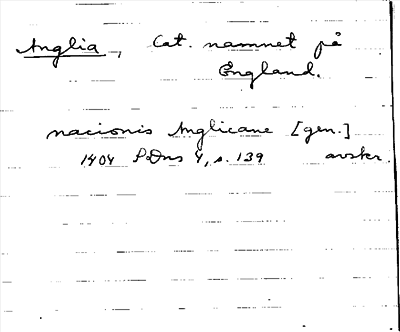 Anglia, Lat. namnet på
England.
nacionis Anglicane [gen.]
1404 SDns 4, s. 139 avskr.